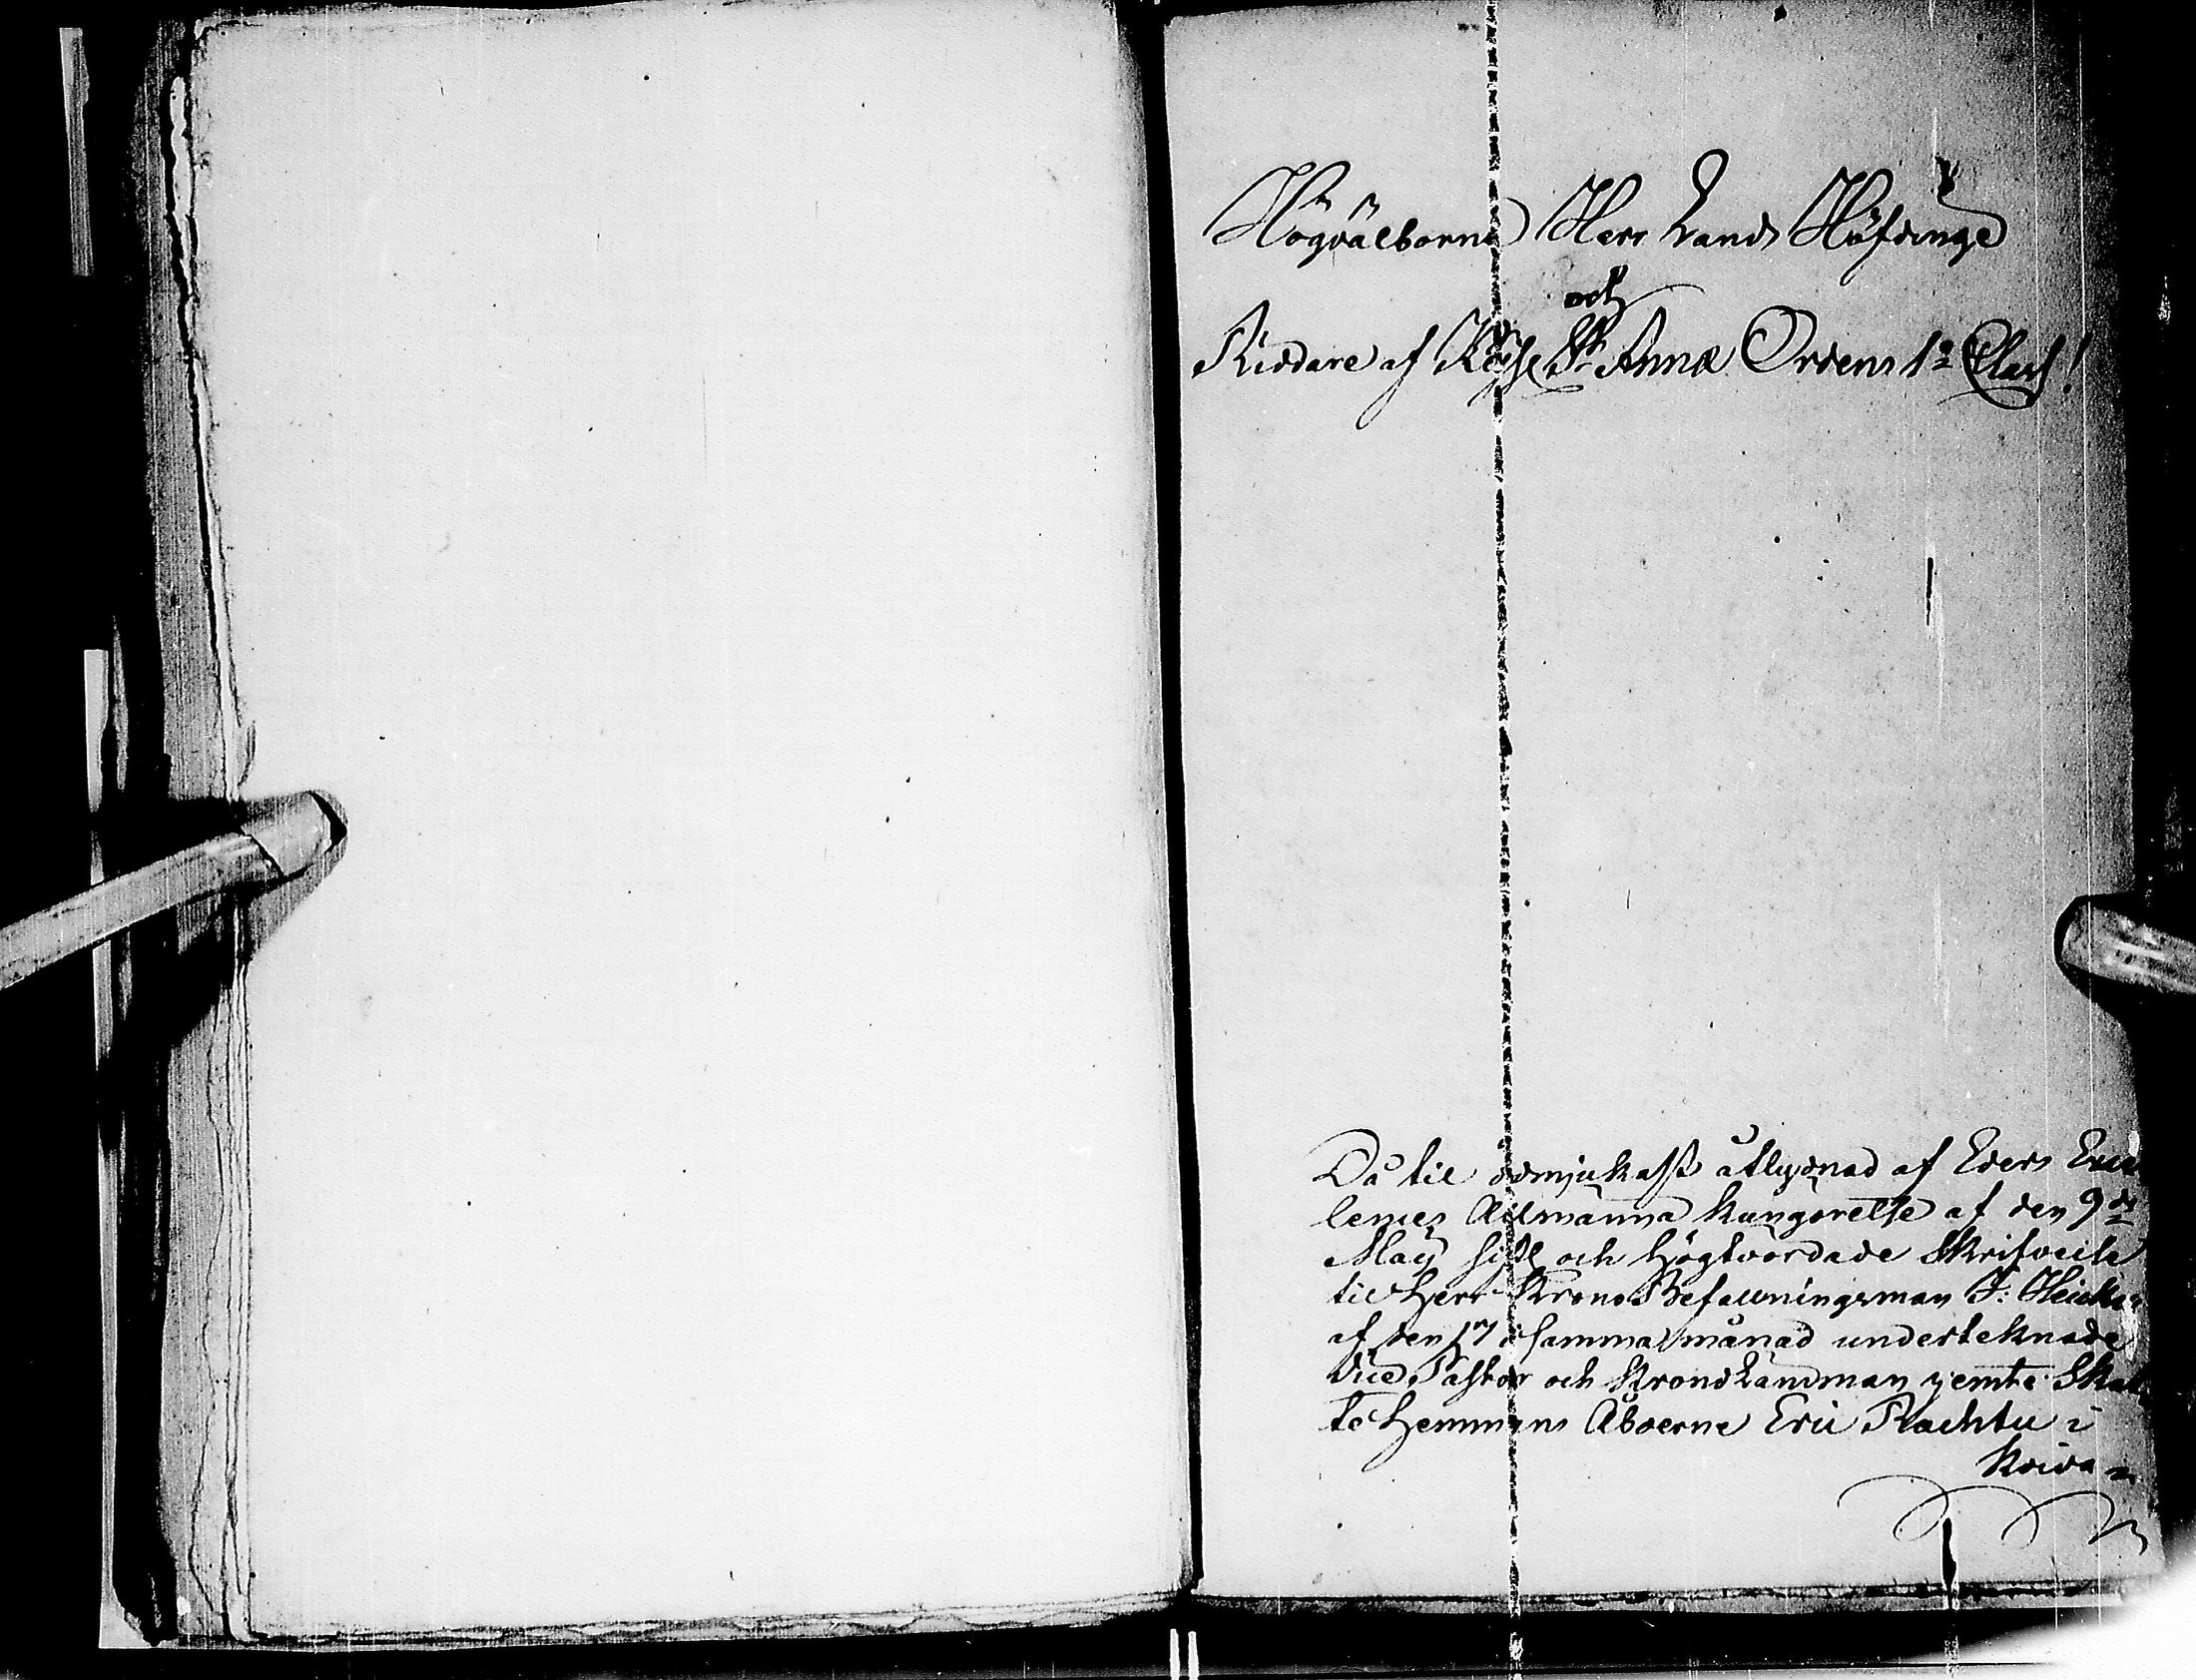 Högvälborne Herr Lands Höfdinge
och
Riddare af Keyse St Annæ Ordens 1a Class!
Då til ödmjukast åtlydnad af Eders Excel
lences Allmänna kungörelse af den 9de
Maij sistl och högtvördade Skrifvelse
til Herr Krono Befallningsman J: Heicke
af den 17 i samma månad undertecknade
Vice Pastor och Krono Länsman jemte Skat
te Hemmans Åboerne Eric Rachtu i